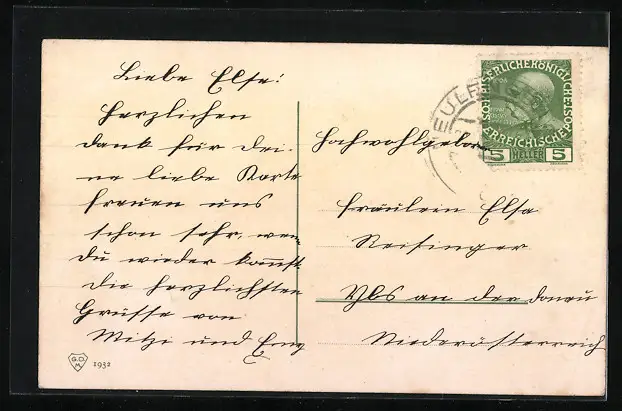 Liebe Else!
Herzlichen
dank für dei-
ne liebe Karte
freuen uns
schon sehr, wen
du wieder kommst
die herzlichsten
Grüsse von
Mitzi und
G.D.
M.
1932
Hochwohlgeboren
Fräulein Elsa
Reisinger
Ybs an der donau
Niederösterreich
KAISERLICHEKÖNIGLICHE
ÖSTERREICHISCHE
5 HELLER 5